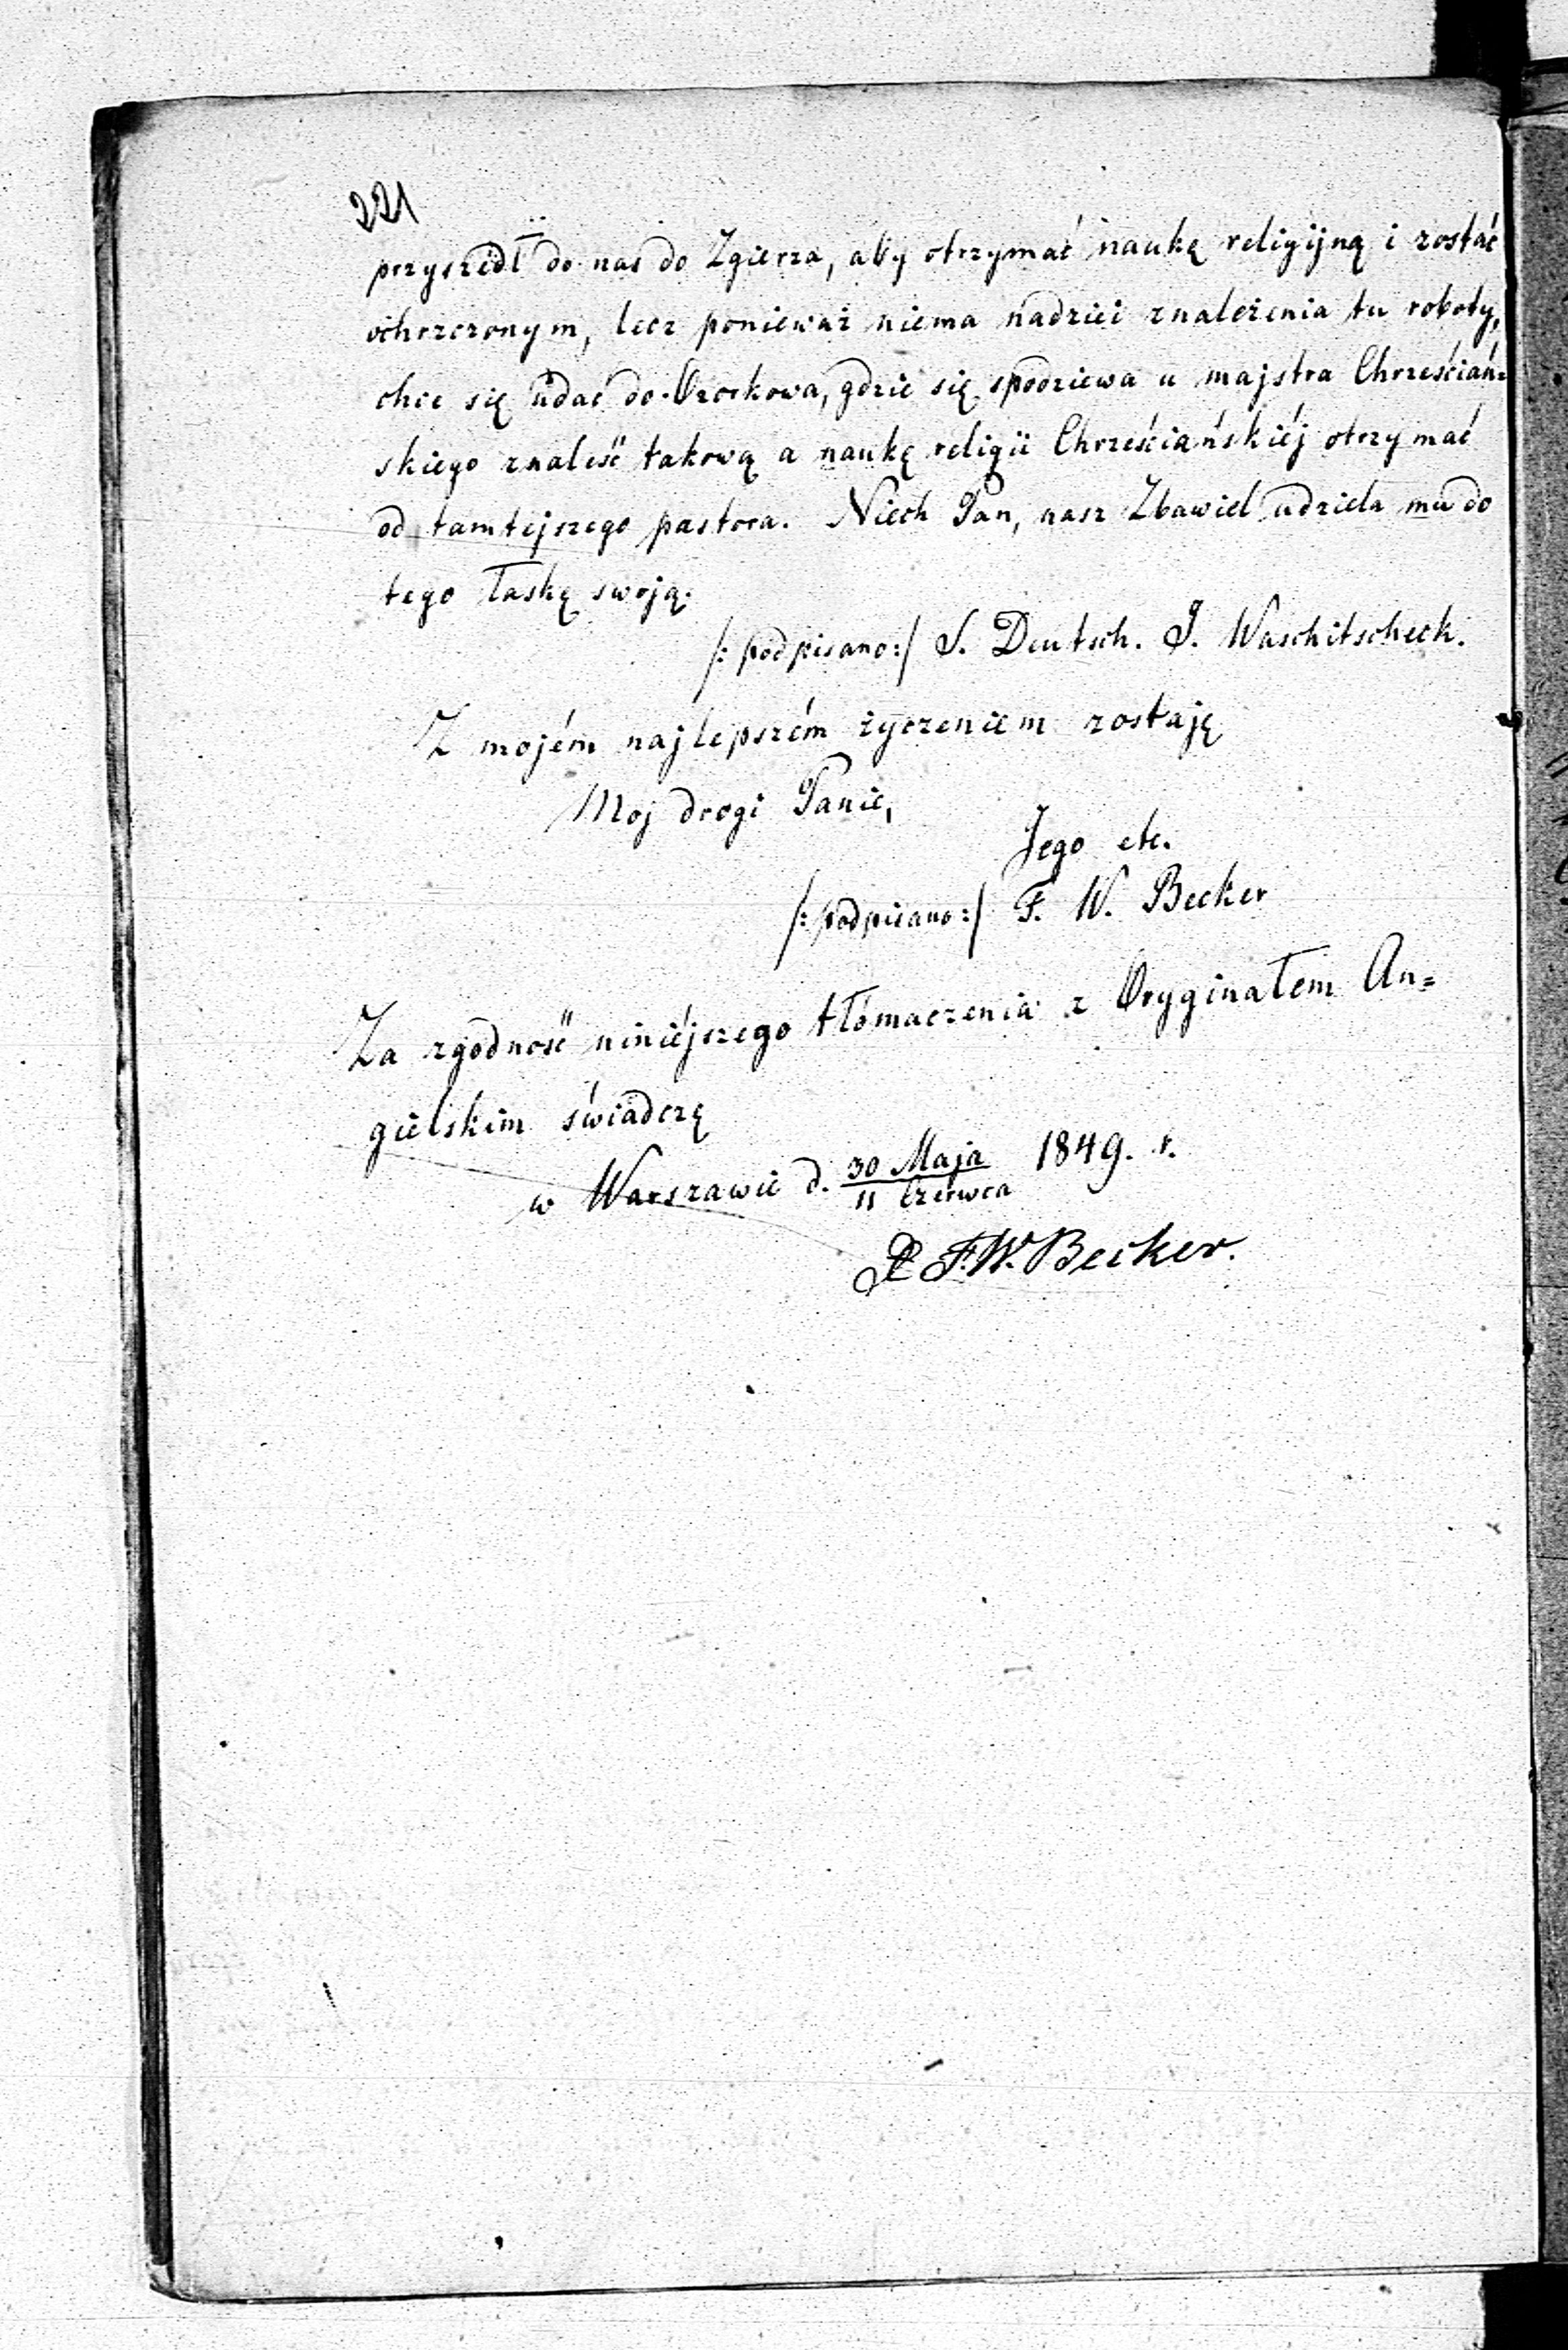 221
przyszedł do nas do Zgierza, aby otrzymać naukę religijną i zostać
ochrzczonym, lecz ponieważ niema nadziei znalezienia tu roboty,
chce się udać do Ozorkowa, gdzie się spodziewa u majstra Chrześciań=
skiego znaleść takową a naukę religii Chrześciańskiéj otrzymać
od tamtejszego pastora. Niech Pan, nasz Zbawiel udziela mu do
tego łaskę swoją.
/: podpisano :/ S. Deutsch. J. Waschitscheck.
Z mojém najlepszém życzeniem zostaję
Moj drogi Panie,
Jego etc.
/: podpisano :/ F. W. Becker
Za zgodność niniéjszego tłómaczenia z Oryginałem An=
gielskim świadczę
w Warszawie d. 30 Maja 1849. r.
11 Czerwca
F. W. Becker.